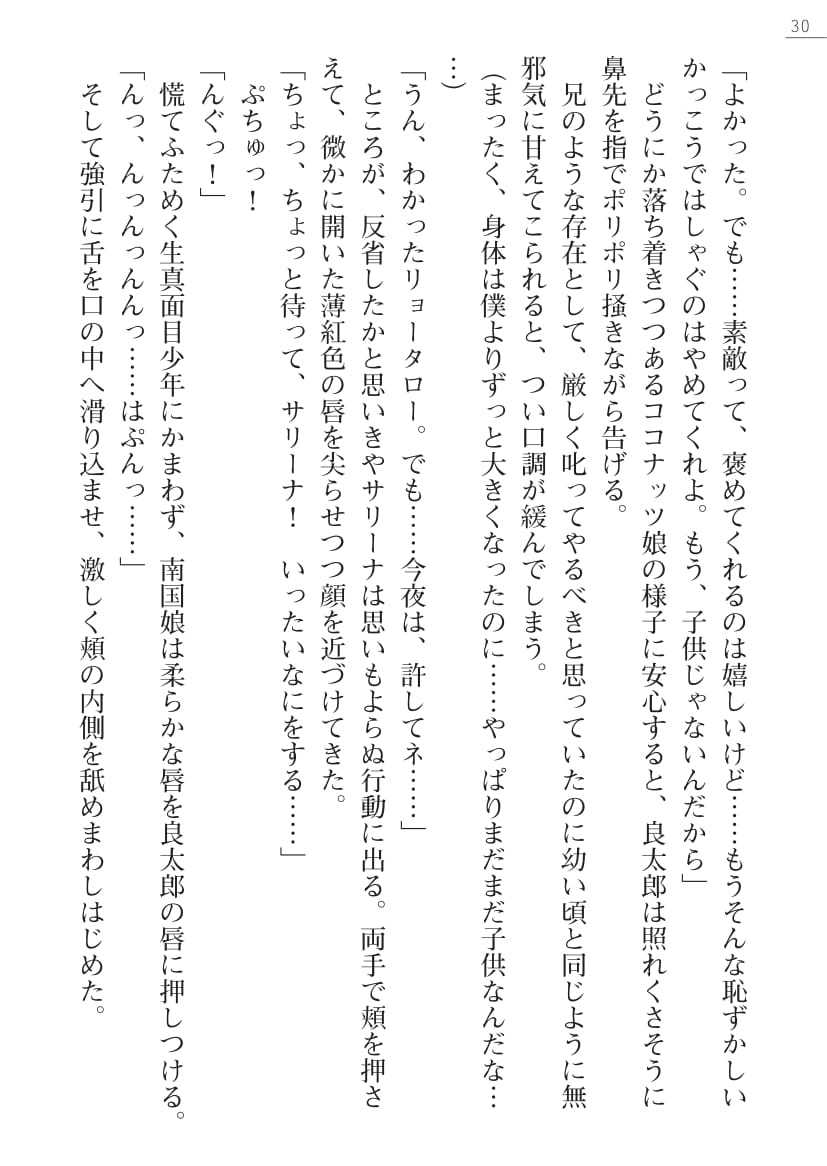 30
「よかった。でも……素敵って、褒めてくれるのは嬉しいけど……もうそんな恥ずかしい
かっこうではしゃぐのはやめてくれよ。もう、子供じゃないんだから」
どうにか落ち着きつつあるココナッツ娘の様子に安心すると、良太郎は照れくさそうに
鼻先を指でポリポリ掻きながら告げる。
兄のような存在として、厳しく叱ってやるべきと思っていたのに幼い頃と同じように無
邪気に甘えてこられると、つい口調が緩んでしまう。
(まったく、身体は僕よりずっと大きくなったのに……やっぱりまだまだ子供なんだな…
…)
「うん、わかったリョータロー。でも……今夜は、許してネ……」
ところが、反省したかと思いきやサリーナは思いもよらぬ行動に出る。両手で頬を押さ
えて、微かに開いた薄紅色の唇を尖らせつつ顔を近づけてきた。
「ちょっ、ちょっと待って、サリーナ！　いったいなにをする……」
ぷちゅっ！
「んぐっ！」
慌てふためく生真面目少年にかまわず、南国娘は柔らかな唇を良太郎の唇に押しつける。
「んっ、んっんっんんっ……はぷんっ……」
そして強引に舌を口の中へ滑り込ませ、激しく頬の内側を舐めまわしはじめた。